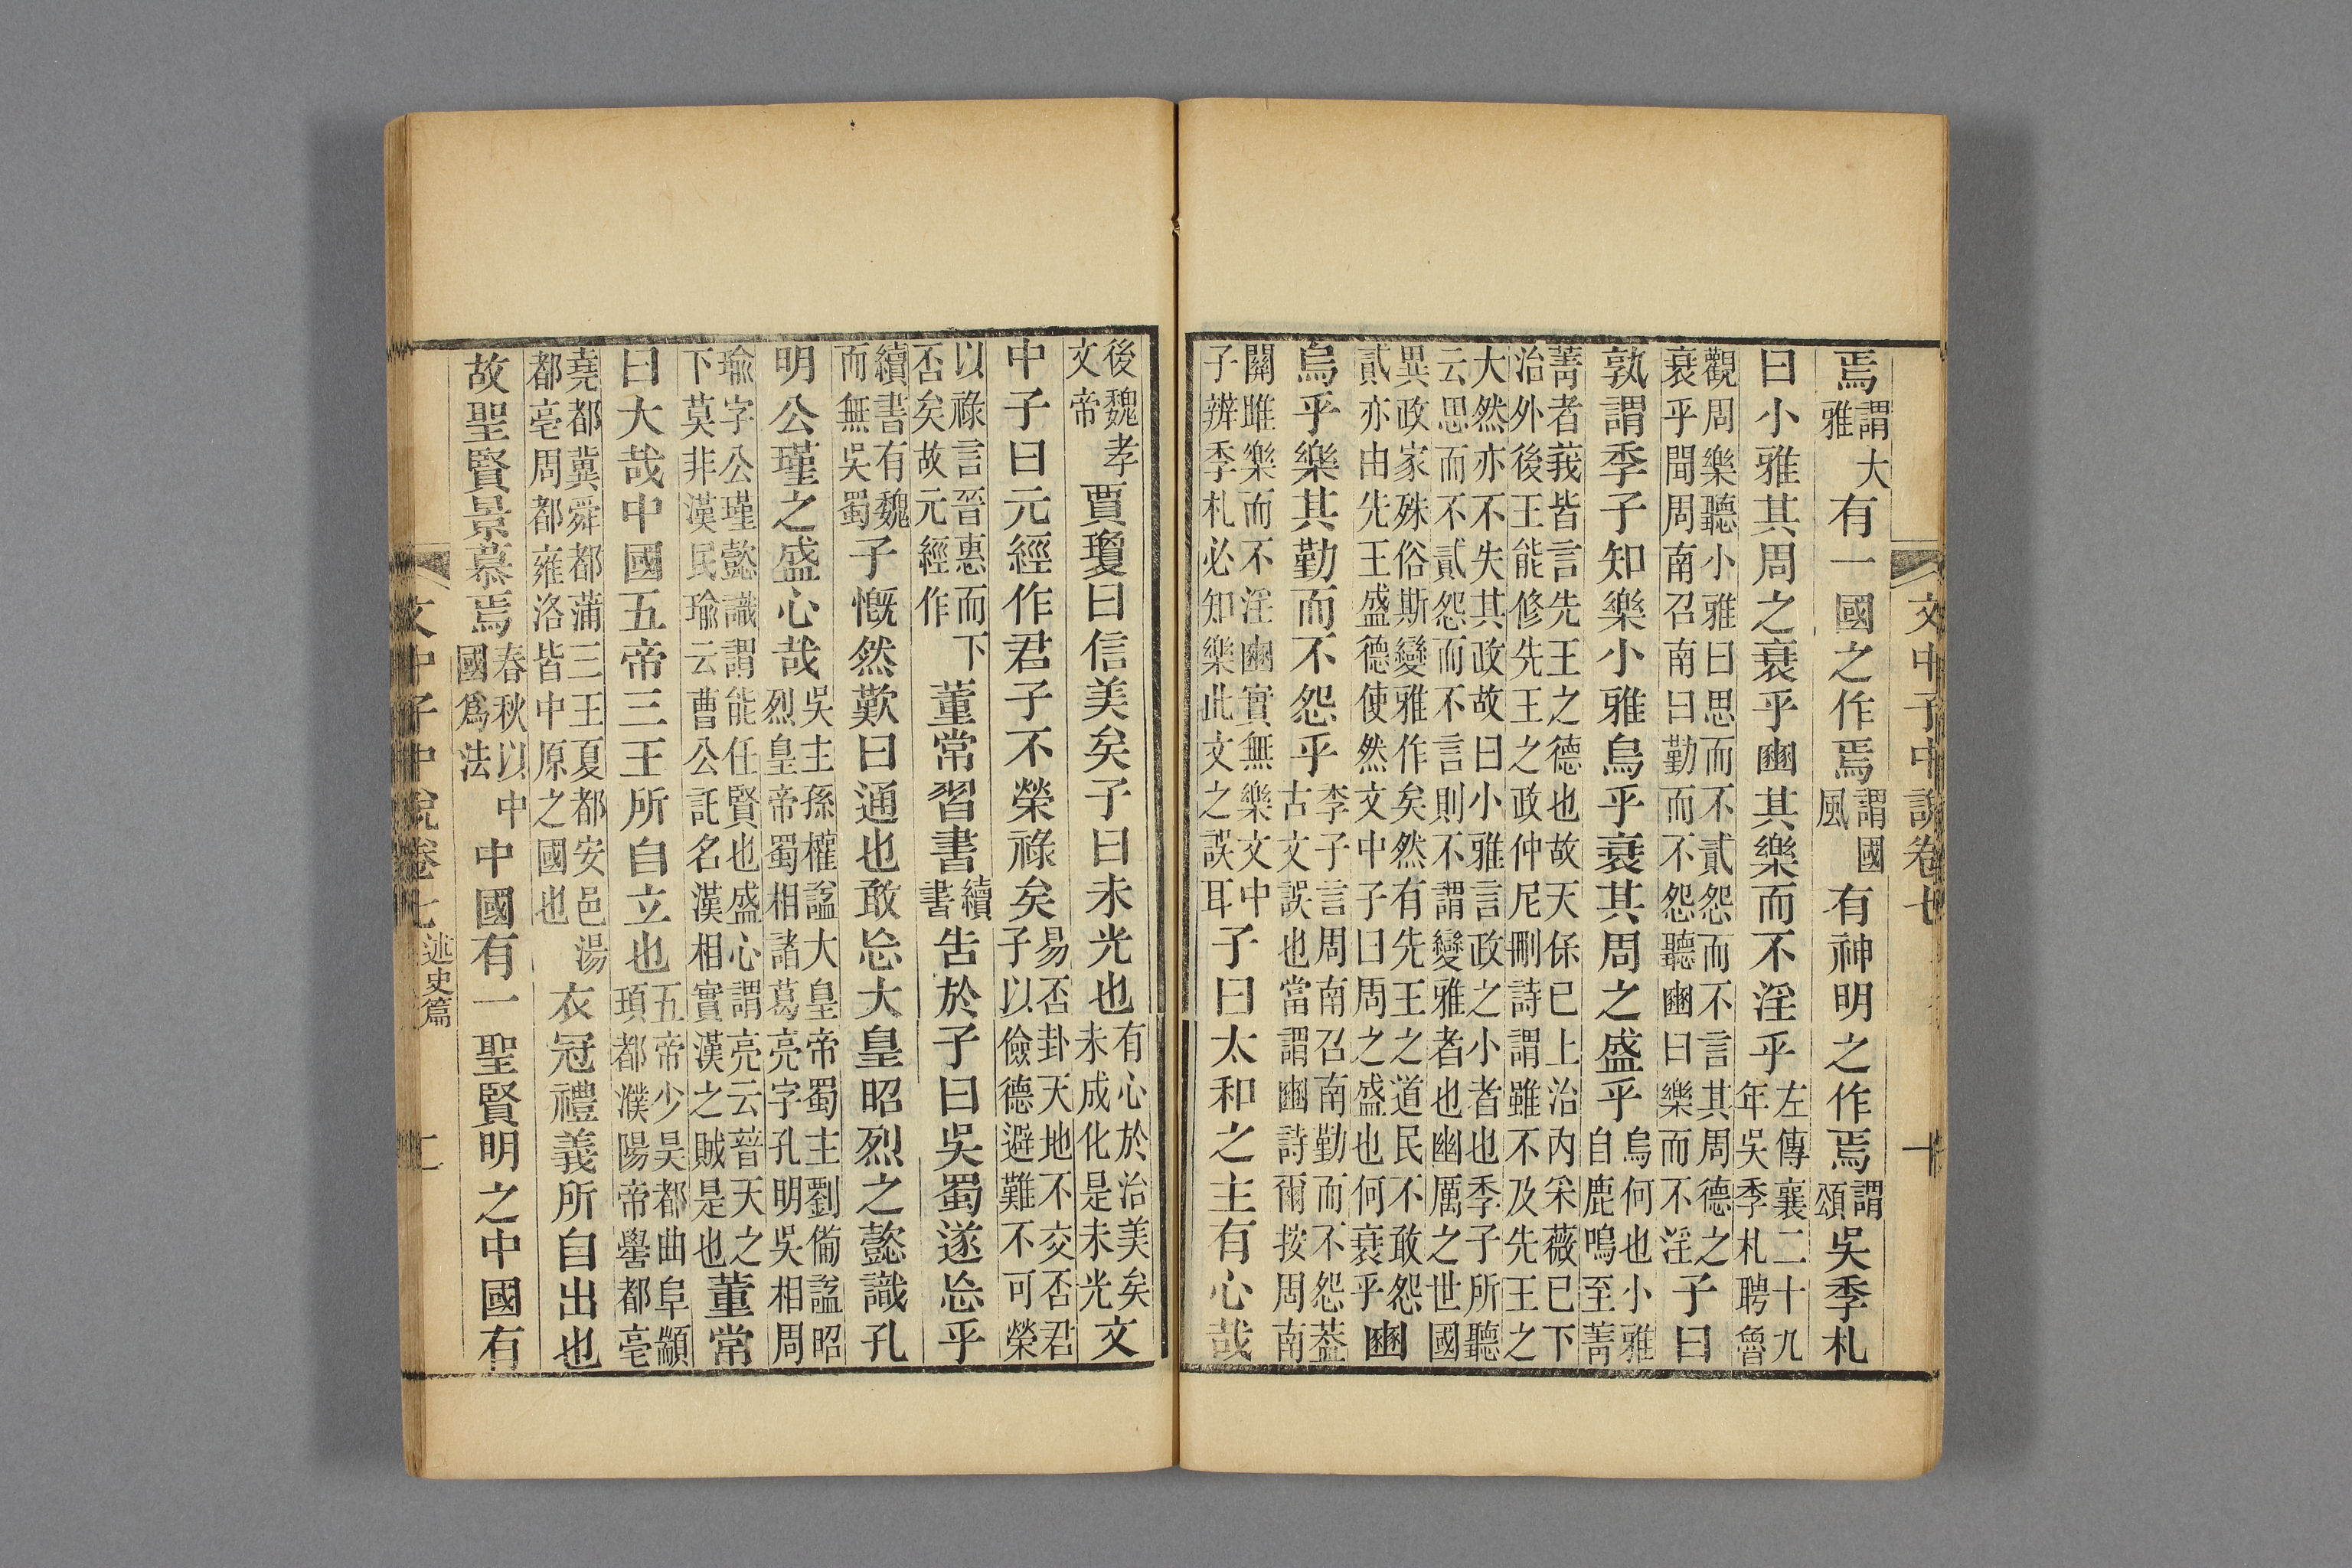 文中子中說卷七 十
焉謂大雅有一國之作焉謂國風有神明之作焉謂頌吳季札
曰小雅其周之衰乎豳其樂而不淫乎左傳襄二十九年吳季札聘魯
觀周樂聽小雅曰思而不貳怨而不言其周德之衰乎聞周南召南曰勤而不怨聽豳曰樂而不淫子曰
孰謂季子知樂小雅烏乎衰其周之盛乎烏何也小雅自鹿鳴至菁
菁者莪皆言先王之德也故天保已上治內采薇已下治外後王能修先王之政仲尼刪詩謂雖不及先王之
大然亦不失其政故曰小雅言政之小者也季子所聽云思而不貳怨而不言則不謂變雅者也幽厲之世國
異政家殊俗斯變雅作矣然有先王之道民不敢怨貳亦由先王盛德使然文中子曰周之盛也何衰乎豳
烏乎樂其勤而不怨乎季子言周南召南勤而不怨葢古文誤也當謂豳詩爾按周南
關雎樂而不淫豳實無樂文中子辨季札必知樂此文之誤耳子曰太和之主有心哉
後魏孝文帝賈瓊曰信美矣子曰未光也有心於治美矣未成化是未光文
中子曰元經作君子不榮祿矣易否卦天地不交否君子以儉德避難不可榮
以祿言晉惠而下否矣故元經作董常習書續書告於子曰吳蜀遂忘乎
續書有魏而無吳蜀子慨然歎曰通也敢忘大皇昭烈之懿識孔
明公瑾之盛心哉吳主孫權諡大皇帝蜀主劉備諡昭烈皇帝蜀相諸葛亮字孔明吳相周
瑜字公瑾懿識謂能任賢也盛心謂亮云普天之下莫非漢民瑜云曹公託名漢相實漢之賊是也董常
曰大哉中國五帝三王所自立也五帝少昊都曲阜顓頊都濮陽帝嚳都亳
堯都冀舜都蒲三王夏都安邑湯都亳周都雍洛皆中原之國也衣冠禮義所自出也
故聖賢景慕焉春秋以中國爲法中國有一聖賢明之中國有
文中子中說卷七 述史篇